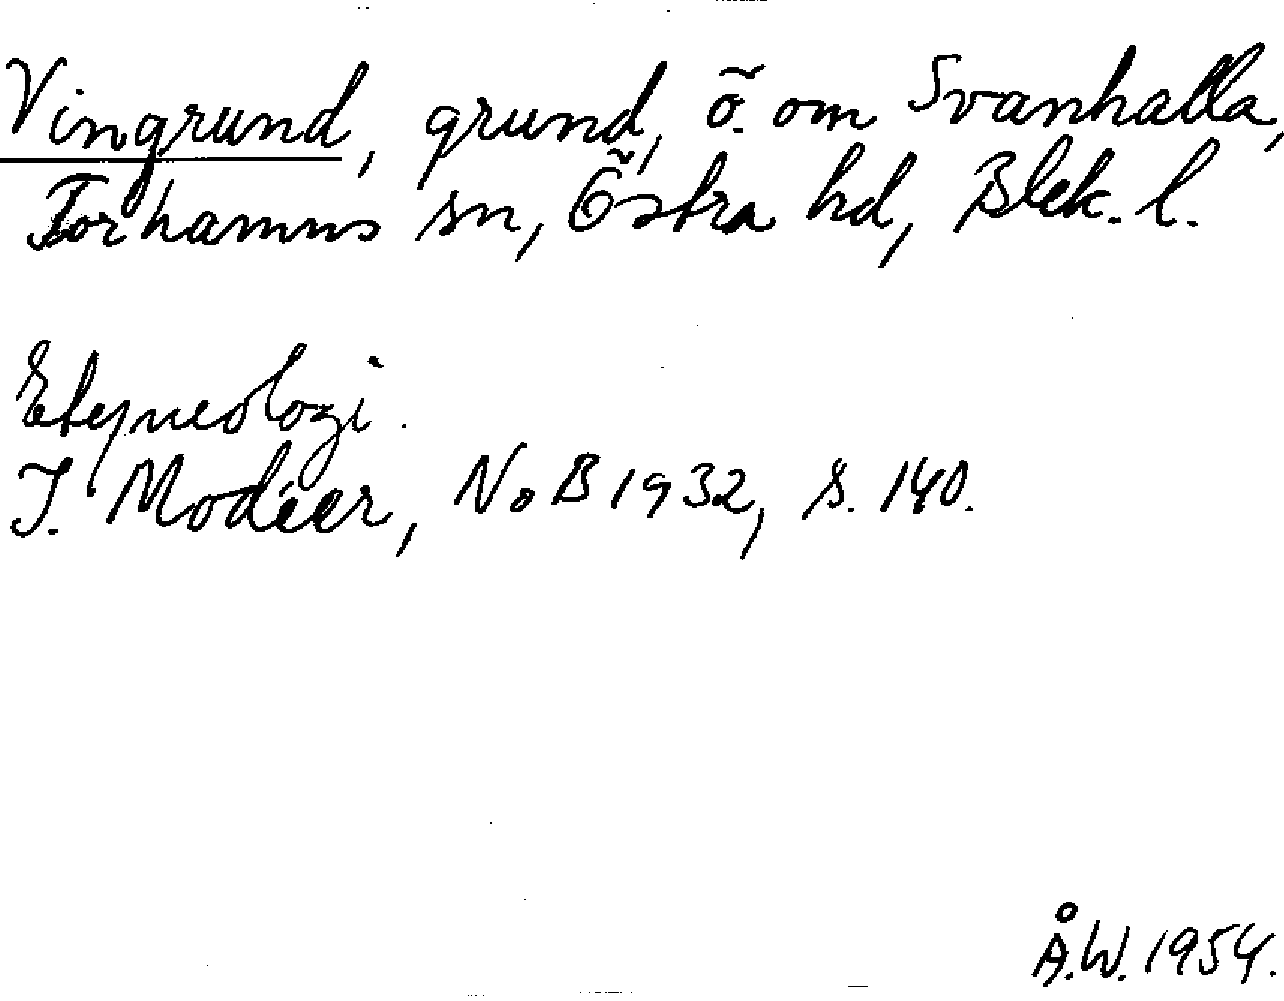 Vingrund, grund, ö. om Svanhalla,
Torhamns sn, Östra hd, Blek. l.
Etymologi.
I. Modéer, NoB 1932, s. 140.
Å.W. 1954.